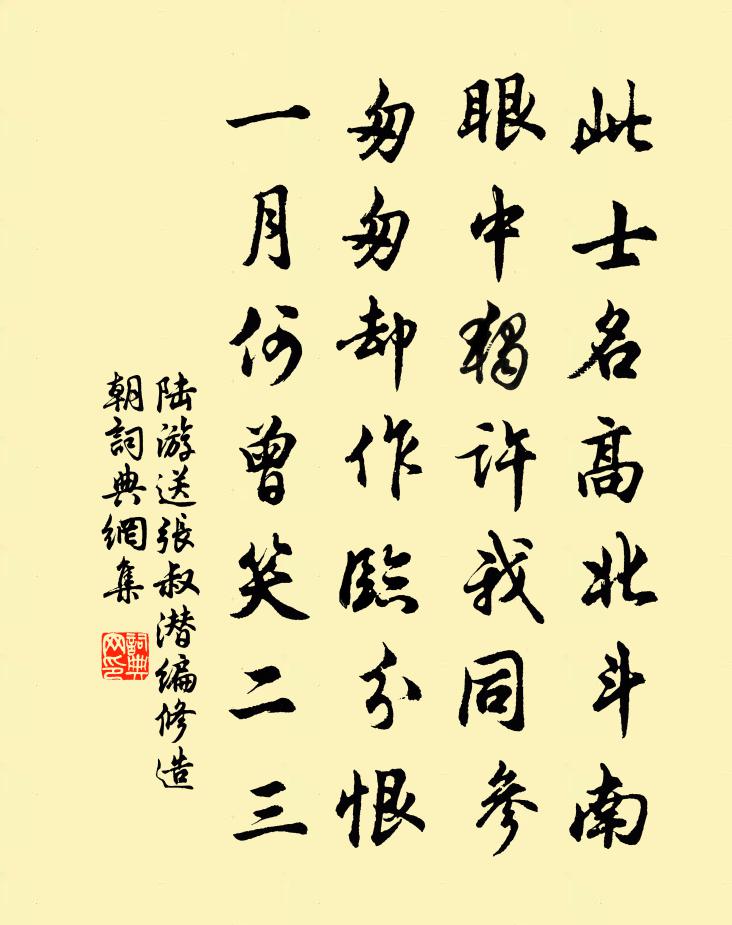 此士名高北斗南
眼中独许我同参
匆匆却作临分恨
一月何曾笑二三
陆游送張叔潜編修造
朝詞典網集
詞典
网印